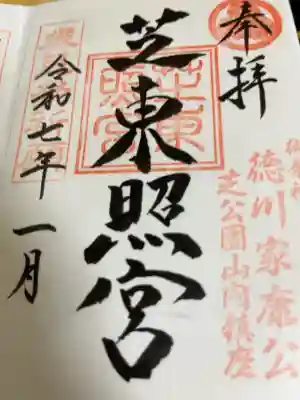 奉拝
徳川家康公
芝公園山内鎮座
芝東照宮
芝東
照宮
令和七年一月